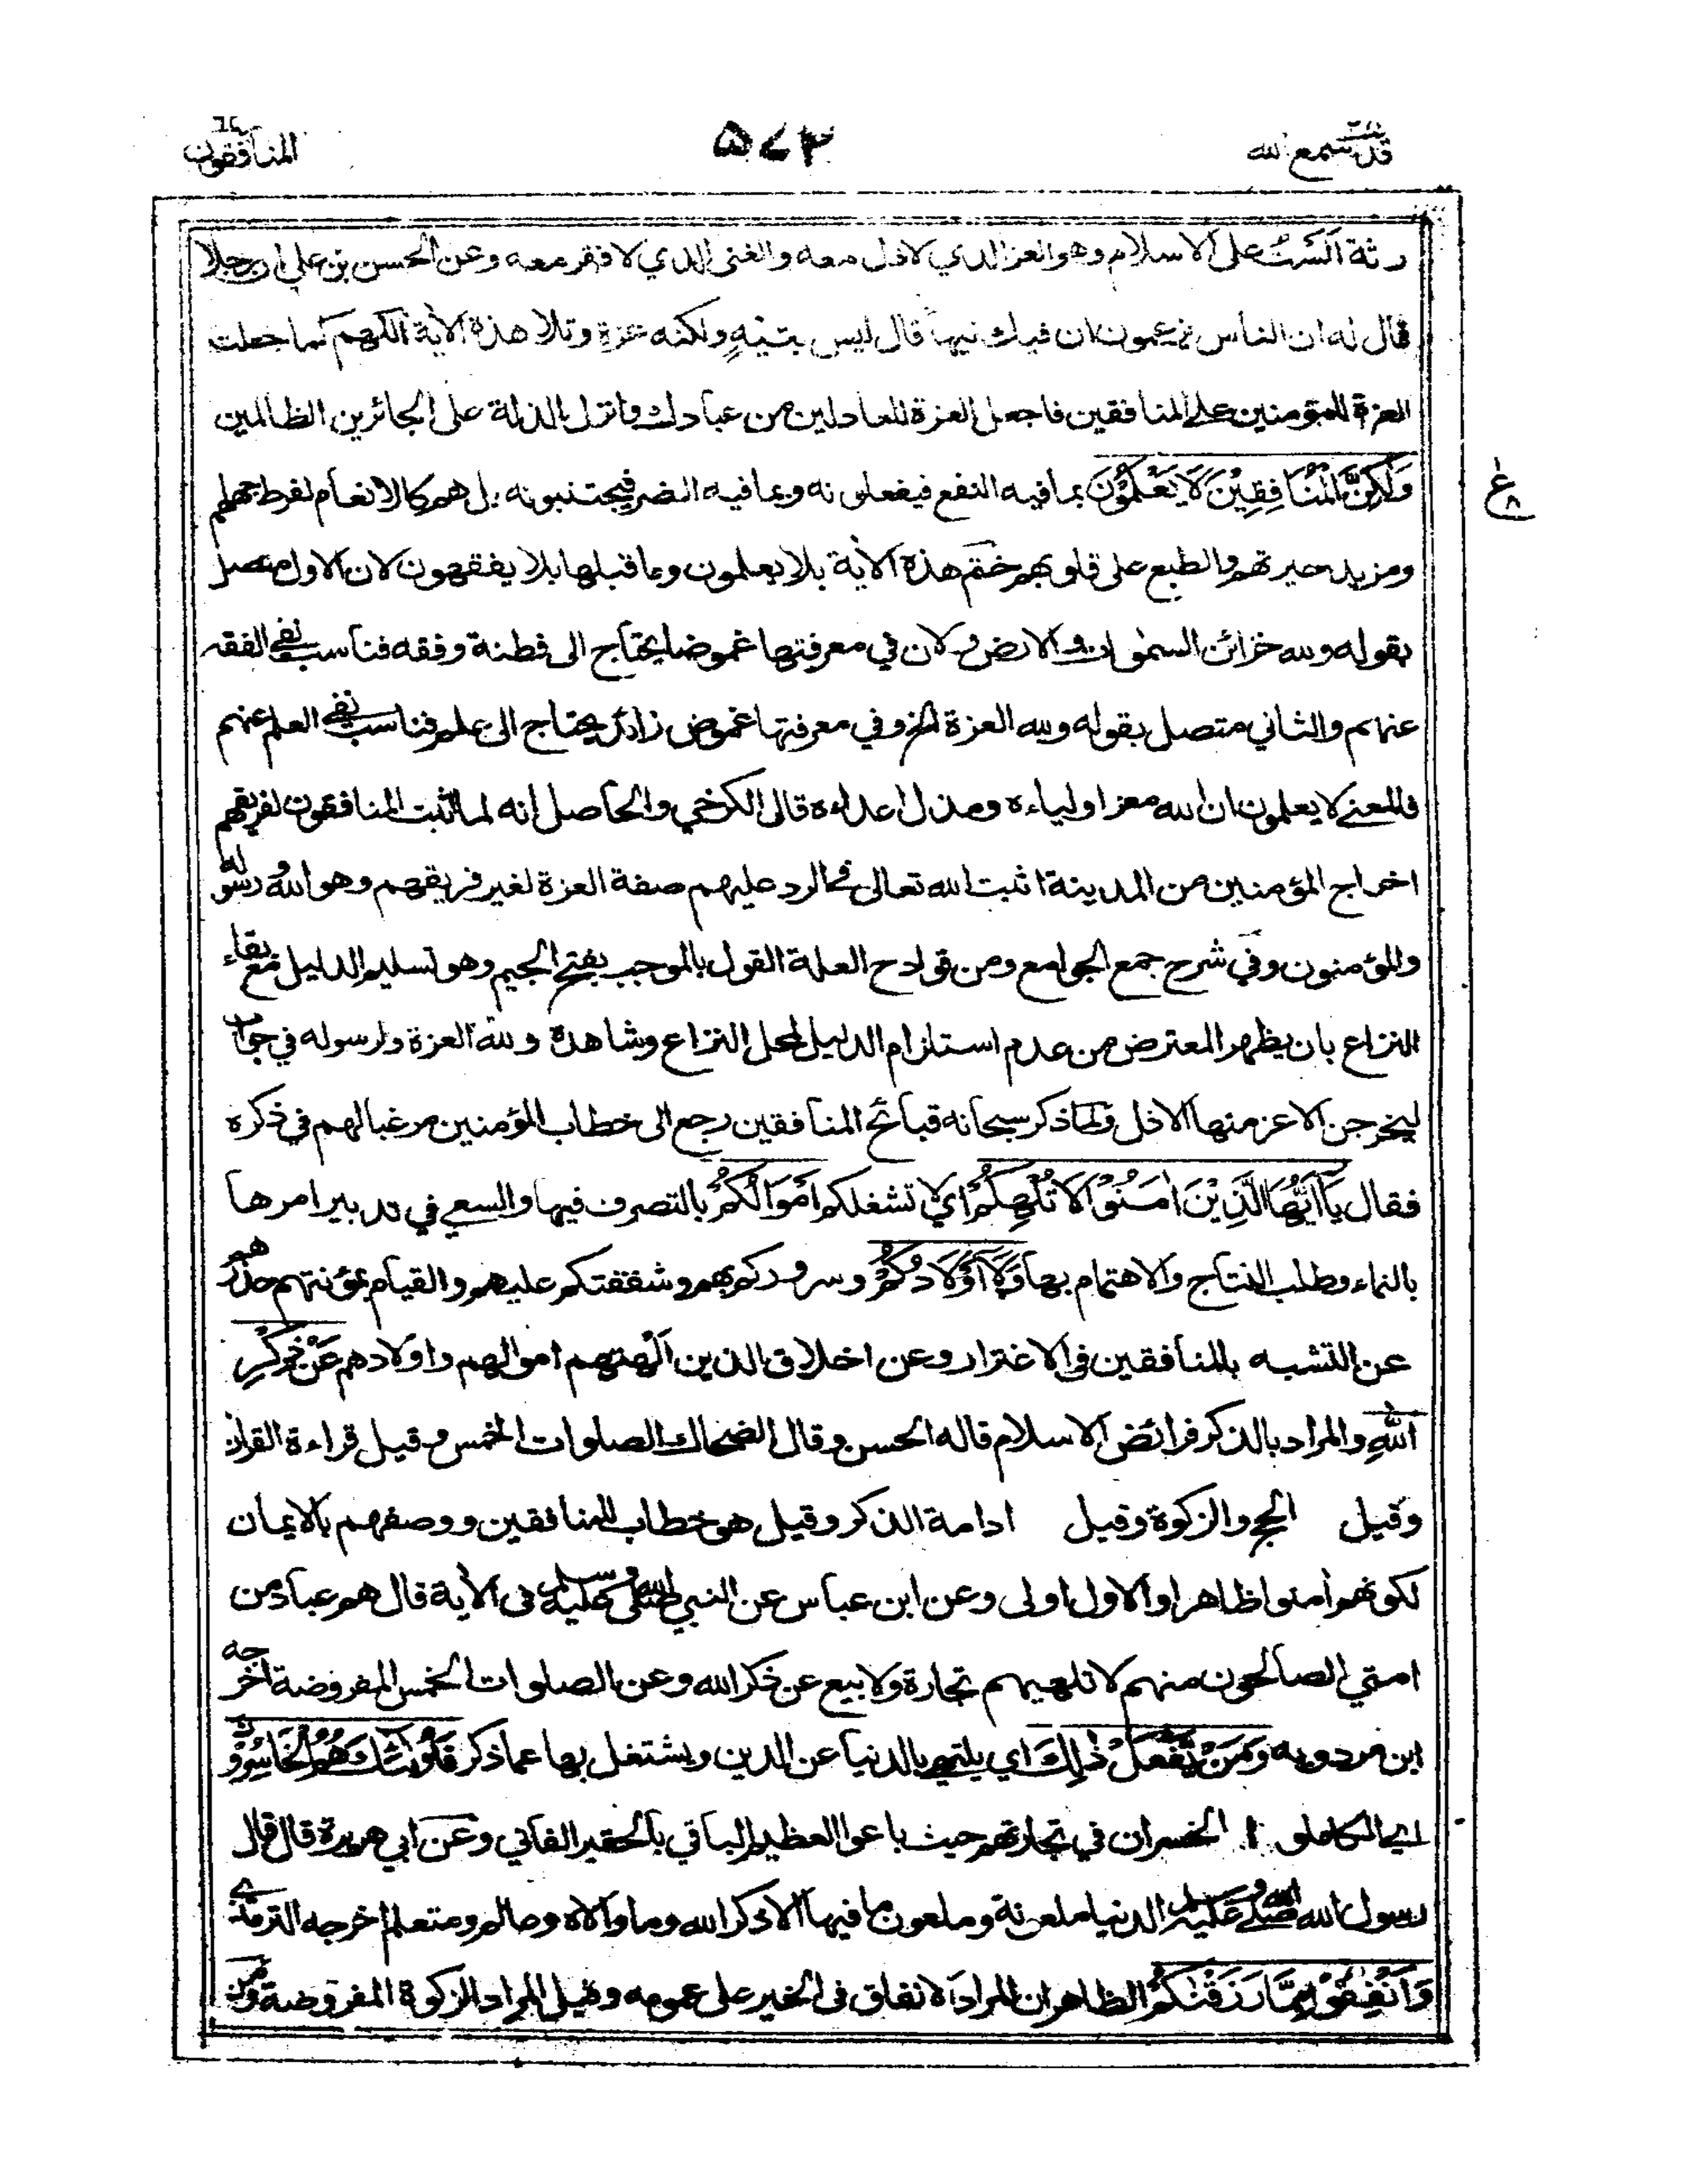 قد سمع الله ٢٨
٥٧٣
المنافقون
رثة ألست على الاسلام وهو العز الذي لا ذل معه والغنى الذي لا فقر معه وعن الحسن بن علي ان رجلا
قال له ان الناس يزعمون ان فيك تيها قال ليس بتيه ولكنه عزة وتلا هذه الآية اللهم كما جعلت
العزة للمؤمنين على المنافقين فاجعل العزة للعادلين من عبادك وانزل بالذلة على الجائرين الظالمين
وَلٰكِنَّ الْمُنَافِقِيْنَ لَا يَعْلَمُوْنَ بما فيه النفع فيفعلونه وبما فيه الضر فيجتنبونه بل هم كالانعام لفرط جهلهم
ع ٨
ومزيد حيرتهم والطبع على قلوبهم ختم هذه الآية بلا يعلمون وما قبلها بلا يفقهون لان الاول متصل
بقوله ولله خزائن السمٰوات والارض ولان في معرفتها غموضا يحتاج الى فطنة وفقه فناسب نفي الفقه
عنهم والثاني متصل بقوله ولله العزة الخ وفي معرفتها غموض زائد يحتاج الى علم فناسب نفي العلم عنهم
فالمعنى لا يعلمون ان الله معز اولياءه ومذل اعداءه قال الكرخي والحاصل انه لما اثبت المنافقون لفريقهم
اخراج المؤمنين من المدينة اثبت الله تعالى في الرد عليهم صفة العزة لغير فريقهم وهو الله ورسوله
والمؤمنون وفي شرح جمع الجوامع ومن قوادح العلة القول بالموجب بفتح الجيم وهو تسليم الدليل مع بقاء
النزاع بان يظهر المعترض من عدم استلزام الدليل لمحل النزاع وشاهده ولله العزة ولرسوله في جواب
ليخرجن الاعز منها الاذل ولما ذكر سبحانه قبائح المنافقين رجع الى خطاب المؤمنين مرغبا لهم في ذكره
فقال يَآ اَيُّهَا الَّذِيْنَ اٰمَنُوْا لَا تُلْهِكُمْ اي لا تشغلكم اَمْوَالُكُمْ بالتصرف فيها والسعي في تدبير امرها
بالنماء وطلب النتاج والاهتمام بها وَلَآ اَوْلَادُكُمْ وسروركم بهم وشفقتكم عليهم والقيام بمؤنتهم حذرهم
عن التشبه بالمنافقين في الاغترار وعن اخلاق الذين ألهتهم اموالهم واولادهم عَنْ ذِكْرِ
اللّٰهِ والمراد بالذكر فرائض الاسلام قاله الحسن وقال الضحاك الصلوات الخمس وقيل قراءة القرآن
وقيل الحج والزكوة وقيل ادامة الذكر وقيل هو خطاب للمنافقين ووصفهم بالايمان
لكونهم آمنوا ظاهرا والاول اولى وعن ابن عباس عن النبي صلى الله عليه وسلم فى الآية قال هم عباد من
امتي الصالحون منهم لا تلهيهم تجارة ولا بيع عن ذكر الله وعن الصلوات الخمس المفروضة اخرجه
ابن مردويه وَمَنْ يَّفْعَلْ ذٰلِكَ اي يلتهي بالدنيا عن الدين ويشتغل بها عما ذكر فَاُولٰٓئِكَ هُمُ الْخَاسِرُوْنَ
اي الكاملون الخسران في تجارتهم حيث باعوا العظيم الباقي بالحقير الفاني وعن ابي هريرة قال قال
رسول الله صلى الله عليه وسلم الدنيا ملعونة وملعون ما فيها الا ذكر الله وما والاه وعالم ومتعلم اخرجه الترمذي
وَاَنْفِقُوْا مِمَّا رَزَقْنٰكُمْ الظاهر ان المراد الانفاق فى الخير على عمومه وقيل المراد الزكوة المفروضة ومن